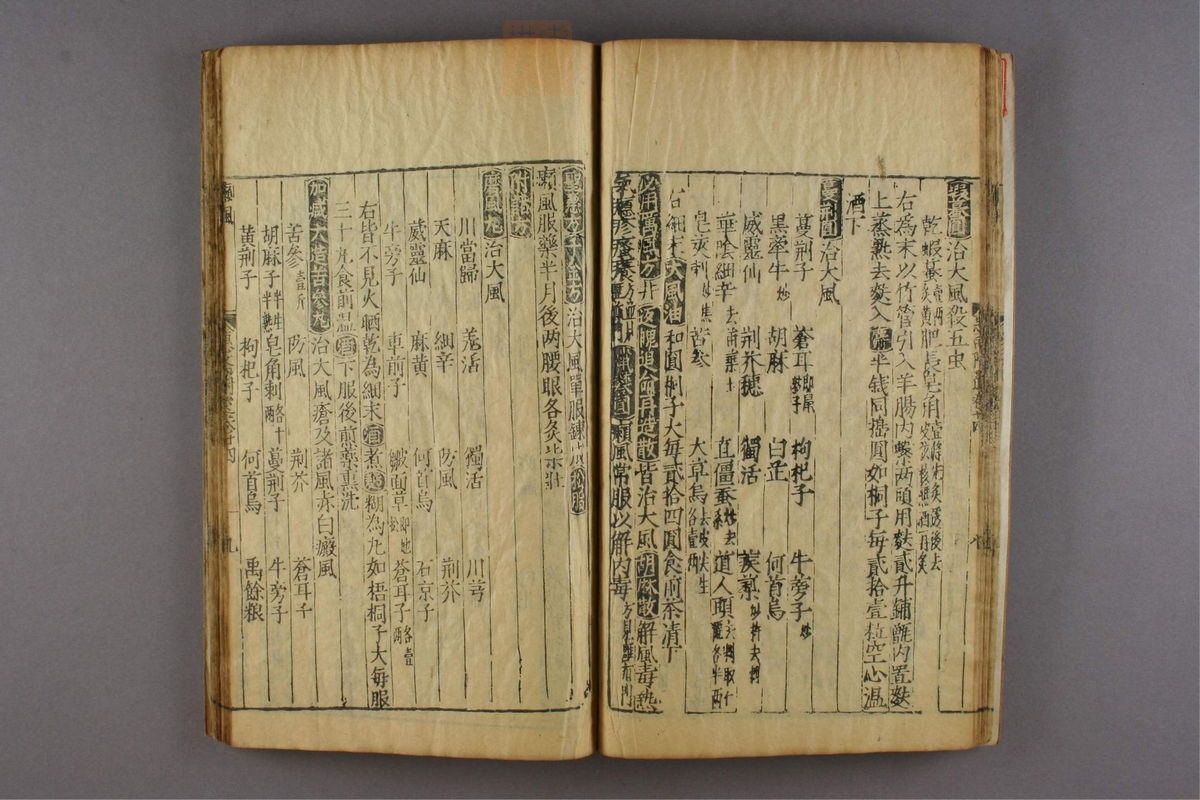 治大風殺五虫
乾蝦蟇壹兩炙黃肥長皂角
右為末以竹管引入羊腸內繫兩頭用麩貳升鋪甑內置麩
上蒸熟去麩入半錢同搗圓如桐子每貳拾壹粒空心溫
酒下
蔓荊圓治大風
蔓荊子 蒼耳 枸杞子 牛蒡子炒
黑牽牛炒 胡麻 白芷 何首烏
威靈仙 荊芥穗 獨活 蒺藜炒杵去刺
華陰細辛去苗葉土 直僵蚕炒去 道人頭
皂莢刺炒焦 苦參 大草烏
右細末大風油和圓桐子大每貳拾四圓食前茶清下
必用萬 再造散皆治大風胡麻散解風毒熱
癩風常服以解內毒
治大風單服
癩風服藥半月後两腰眼各灸 壯
附諸方
磨風丸治大風
川當歸 羌活 獨活 川芎
天麻 細辛 防風 荊芥
威靈仙 麻黃 何首烏 石京子
牛旁子 車前子 皺面草 蒼耳子各壹兩
右皆不見火晒乾為細末酒煮麪糊為丸如梧桐子大每服
三十丸食前温酒下服後煎藥熏洗
加減大造苦參丸治大風瘡及諸風赤白癜風
苦參壹斤 防風 荊芥 蒼耳子
胡麻子半生半熟 皂角刺各十兩 蔓荊子 牛旁子
黃荊子 枸杞子 何首烏 禹餘粮